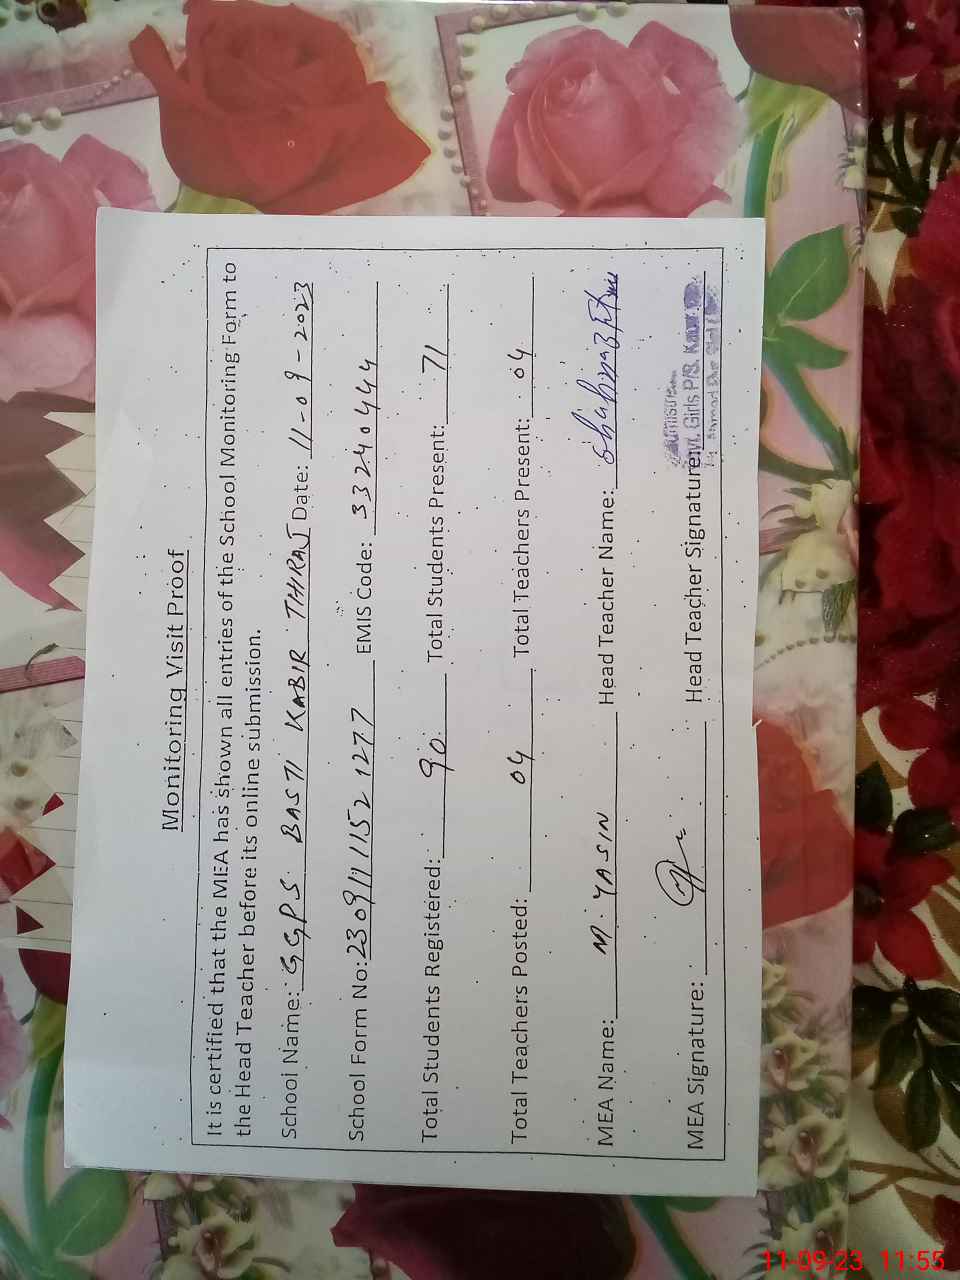 Monitoring Visit Proof
It is certified that the MEA has shown all entries of the School Monitoring Form to
the Head Teacher before its online submission.
School Name: GGPS BASTI KABIR THIRAJ Date: 11-09-2023
School Form No: 2309111521277 EMIS Code: 33240444
Total Students Registered: 90 Total Students Present: 71
Total Teachers Posted: 04 Total Teachers Present: 04
MEA Name: M. YASIN Head Teacher Name: Shahnaz
MEA Signature: Head Teacher Signature:
Girls P/S. Kabir
11-09-23 11:55